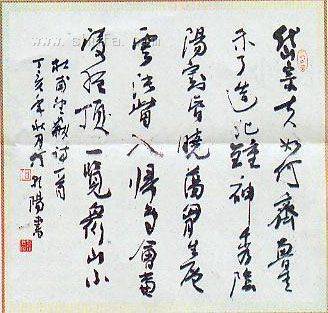 岱宗夫如何齊魯青
未了造化鍾神秀陰
陽割昏曉蕩胸生层
雲决眥入歸鳥會當
凌絕頂一覽衆山小
杜甫望嶽詩一首
丁亥年秋月 陽書